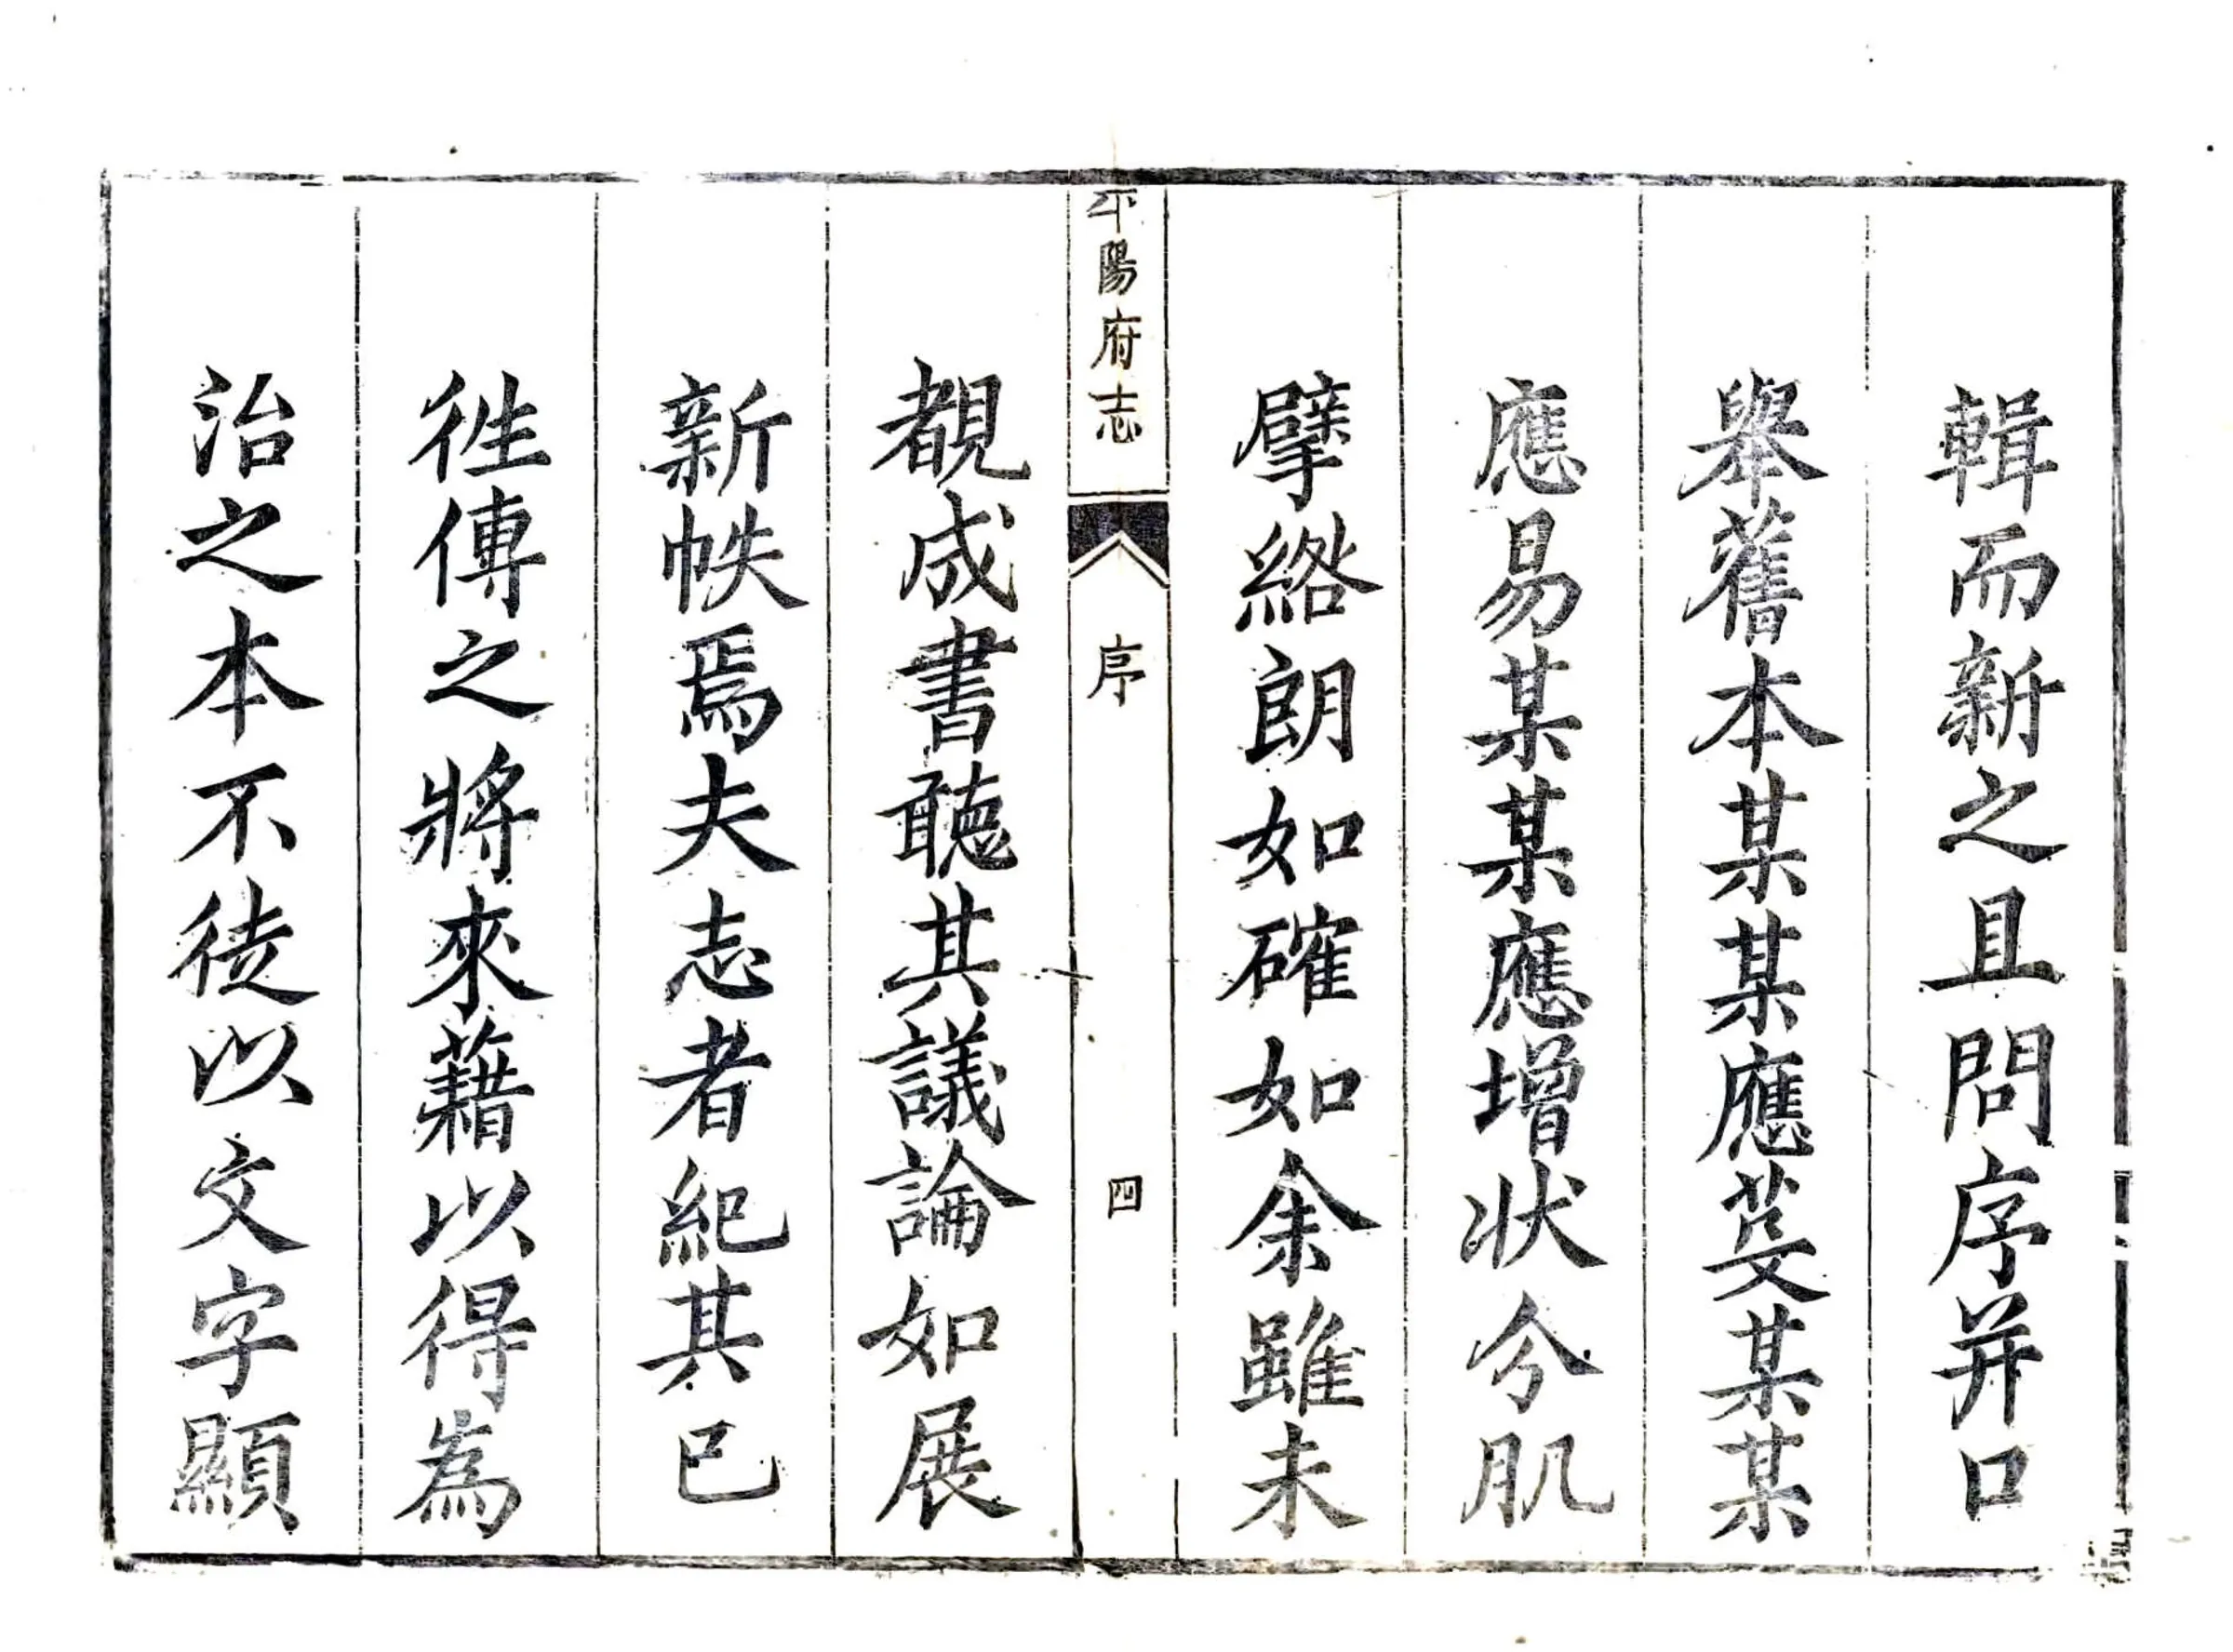 輯而新之且問序并口
舉舊本某某應芟某某
應易某某應增狀分肌
擘綹朗如確如余雖未
平陽府志 序 四
覩成書聽其議論如展
新帙焉夫志者紀其已
徃傳之將來藉以得為
治之本不徒以文字顯